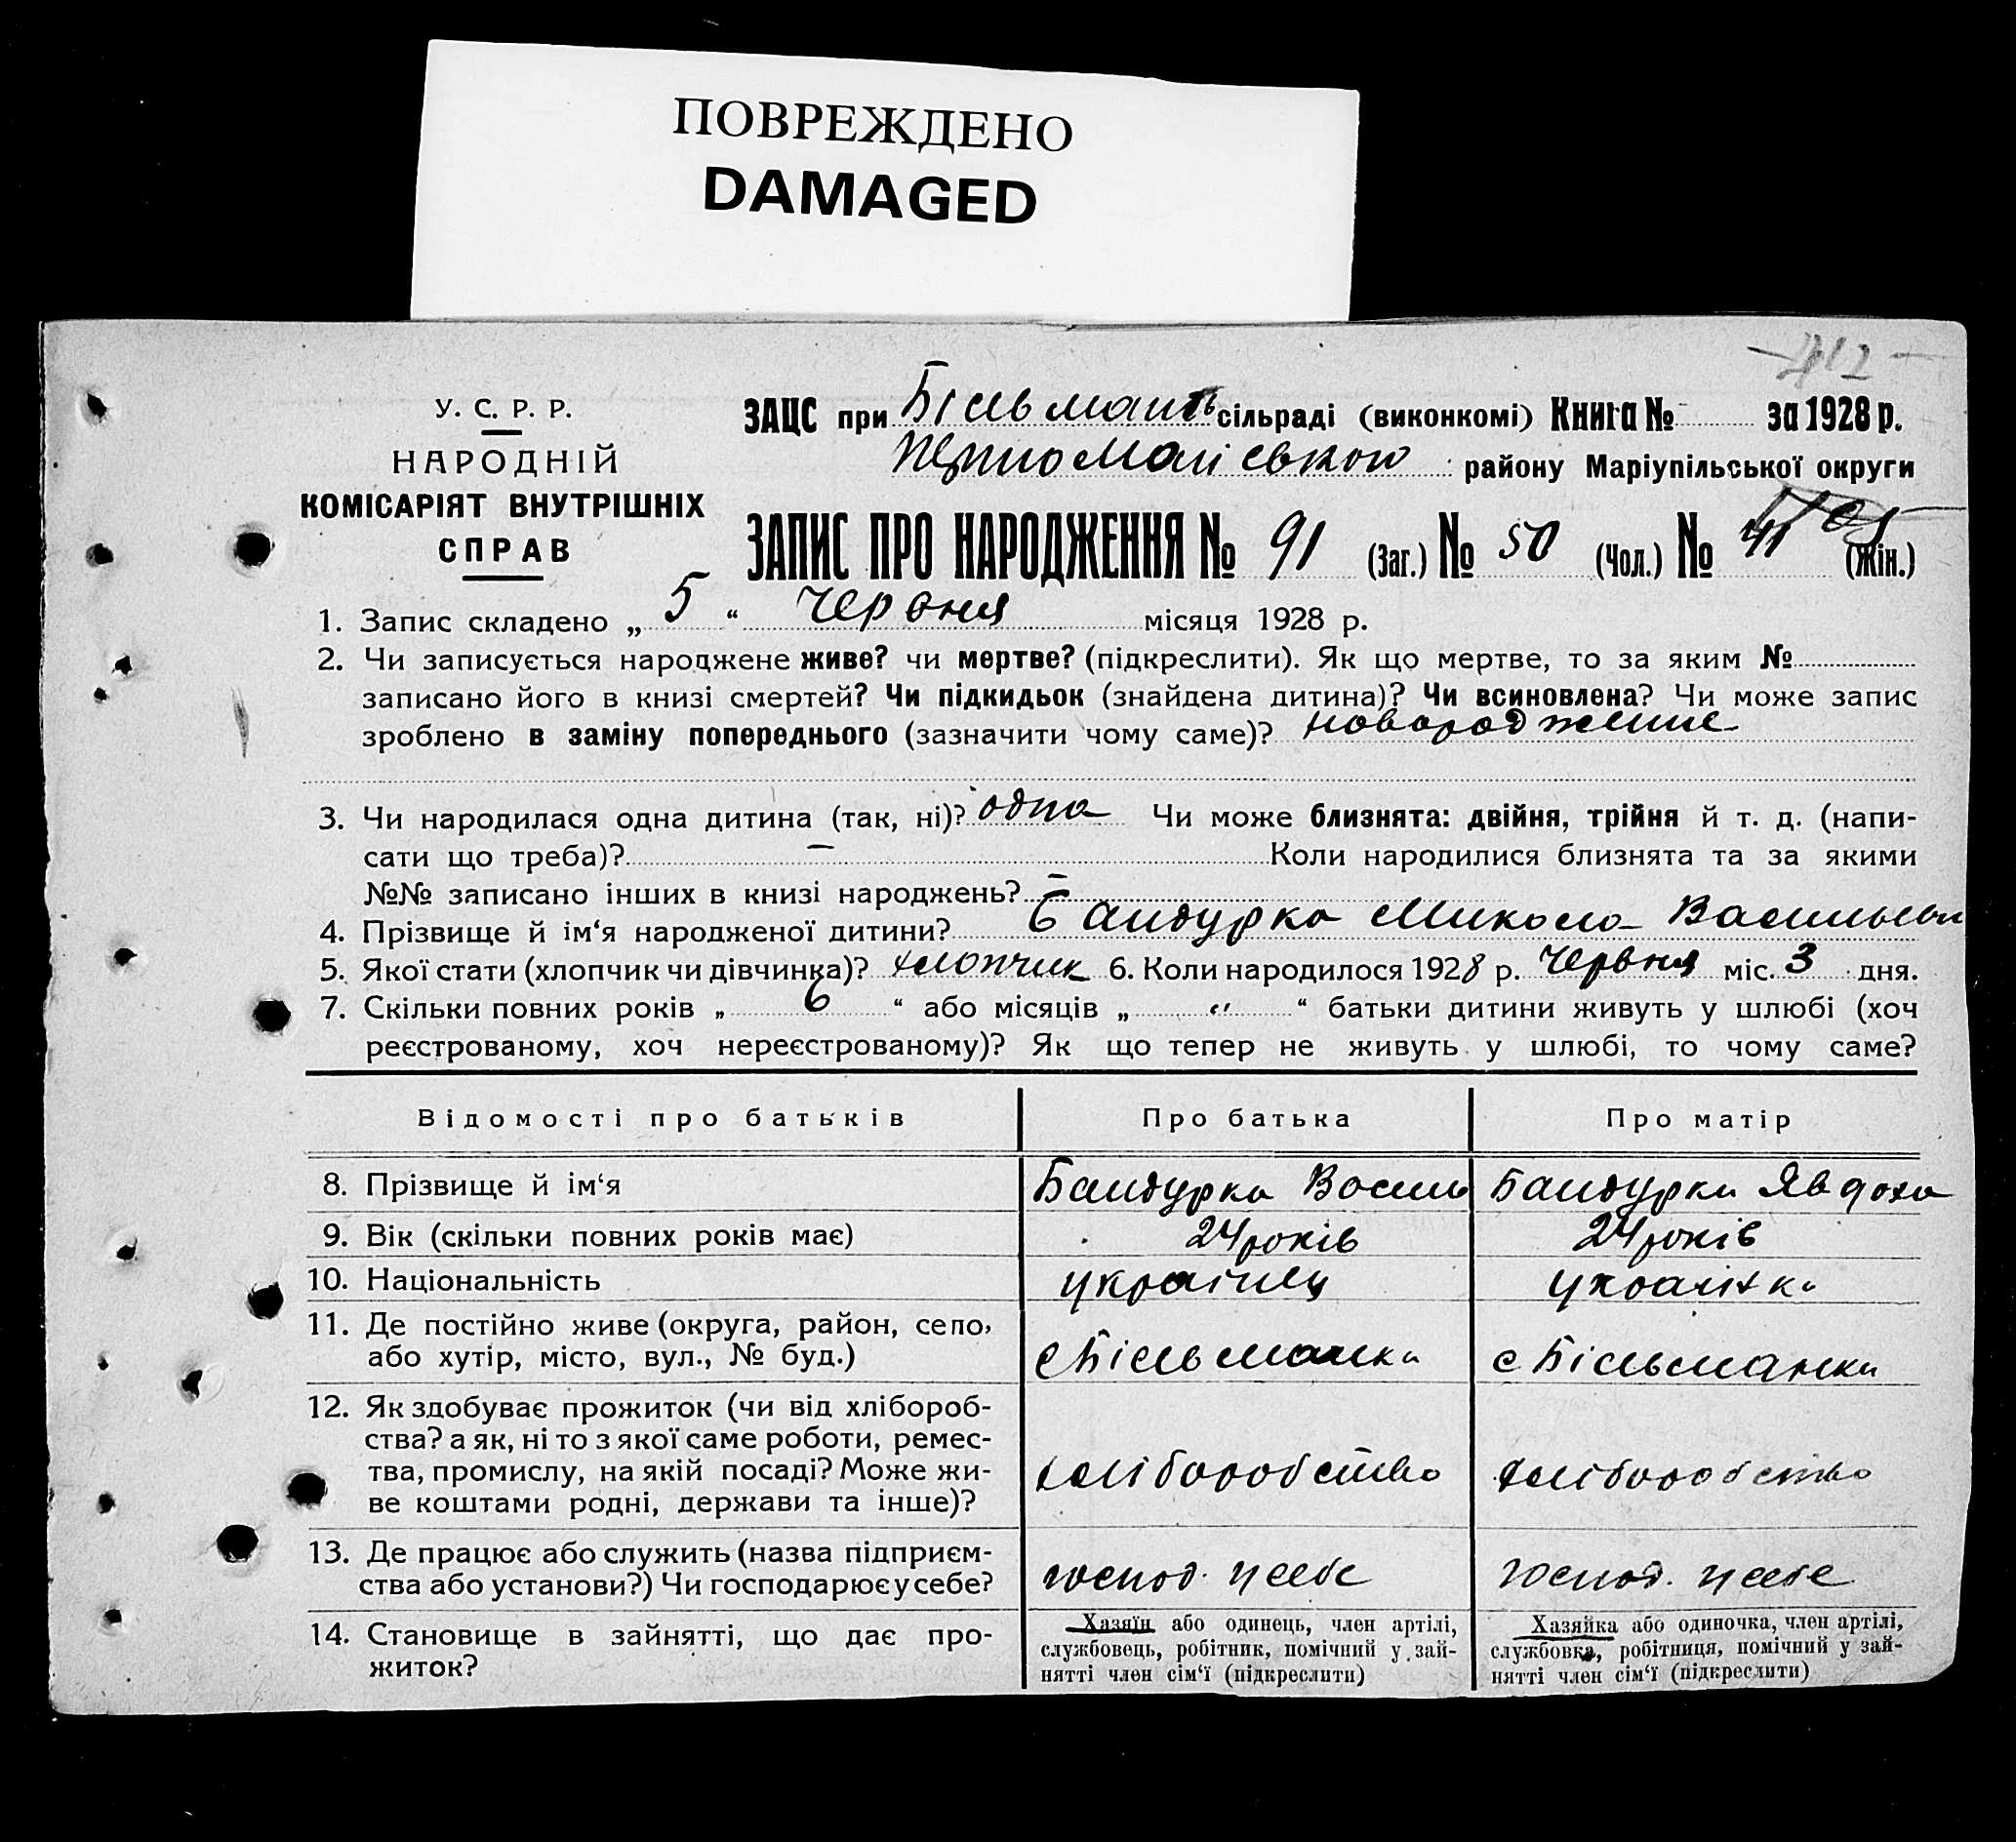 ПОВРЕЖДЕНО
DAMAGED
У. С. Р. Р.
НАРОДНІЙ
КОМІСАРІЯТ ВНУТРІШНІХ
СПРАВ
ЗАЦС при Більмансь сільраді (виконкомі) Книга № за 1928 р.
Першомайською району Маріупільської округи
ЗАПИС ПРО НАРОДЖЕННЯ № 91 (Заг.) № 50 (Чол.) № 41 (Жін.)
1. Запис складено „ 5 “ Червня місяця 1928 р.
2. Чи записується народжене живе? чи мертве? (підкреслити). Як що мертве, то за яким №
записано його в книзі смертей? Чи підкидьок (знайдена дитина)? Чи всиновлена? Чи може запис
зроблено в заміну попереднього (зазначити чому саме)? новорожденне
3. Чи народилася одна дитина (так, ні)? одна Чи може близнята: двійня, трійня й т. д. (напи-
сати що треба)? — Коли народилися близнята та за якими
№№ записано інших в книзі народжень? —
4. Прізвище й ім‘я народженої дитини? Бандурка Микола Васильев
5. Якої стати (хлопчик чи дівчинка)? хлопчик 6. Коли народилося 1928 р. Червня міс. 3 дня.
7. Скільки повних років „ 6 “ або місяців „ “ батьки дитини живуть у шлюбі (хоч
реєстрованому, хоч нереєстрованому)? Як що тепер не живуть у шлюбі, то чому саме?
Відомості про батьків Про батька Про матір
8. Прізвище й ім‘я Бандурка Василь Бандурка Явдоха
9. Вік (скільки повних років має) 24 років 24 років
10. Національність українец українка
11. Де постійно живе (округа, район, село,
або хутір, місто, вул., № буд.) с Більманка с Більманка
12. Як здобуває прожиток (чи від хлібороб-
ства? а як, ні то з якої саме роботи, ремес-
тва, промислу, на якій посаді? Може жи-
ве коштами родні, держави та інше)? хліборобство хліборобство
13. Де працює або служить (назва підприєм-
ства або установи?) Чи господарює у себе? господ. у себе господ. у себе
14. Становище в зайнятті, що дає про-
житок?
Хазяїн або одинець, член артілі,
службовець, робітник, помічний у зай-
нятті член сім‘ї (підкреслити)
Хазяйка або одиночка, член артілі,
службовка, робітниця, помічний у зай-
нятті член сім‘ї (підкреслити)